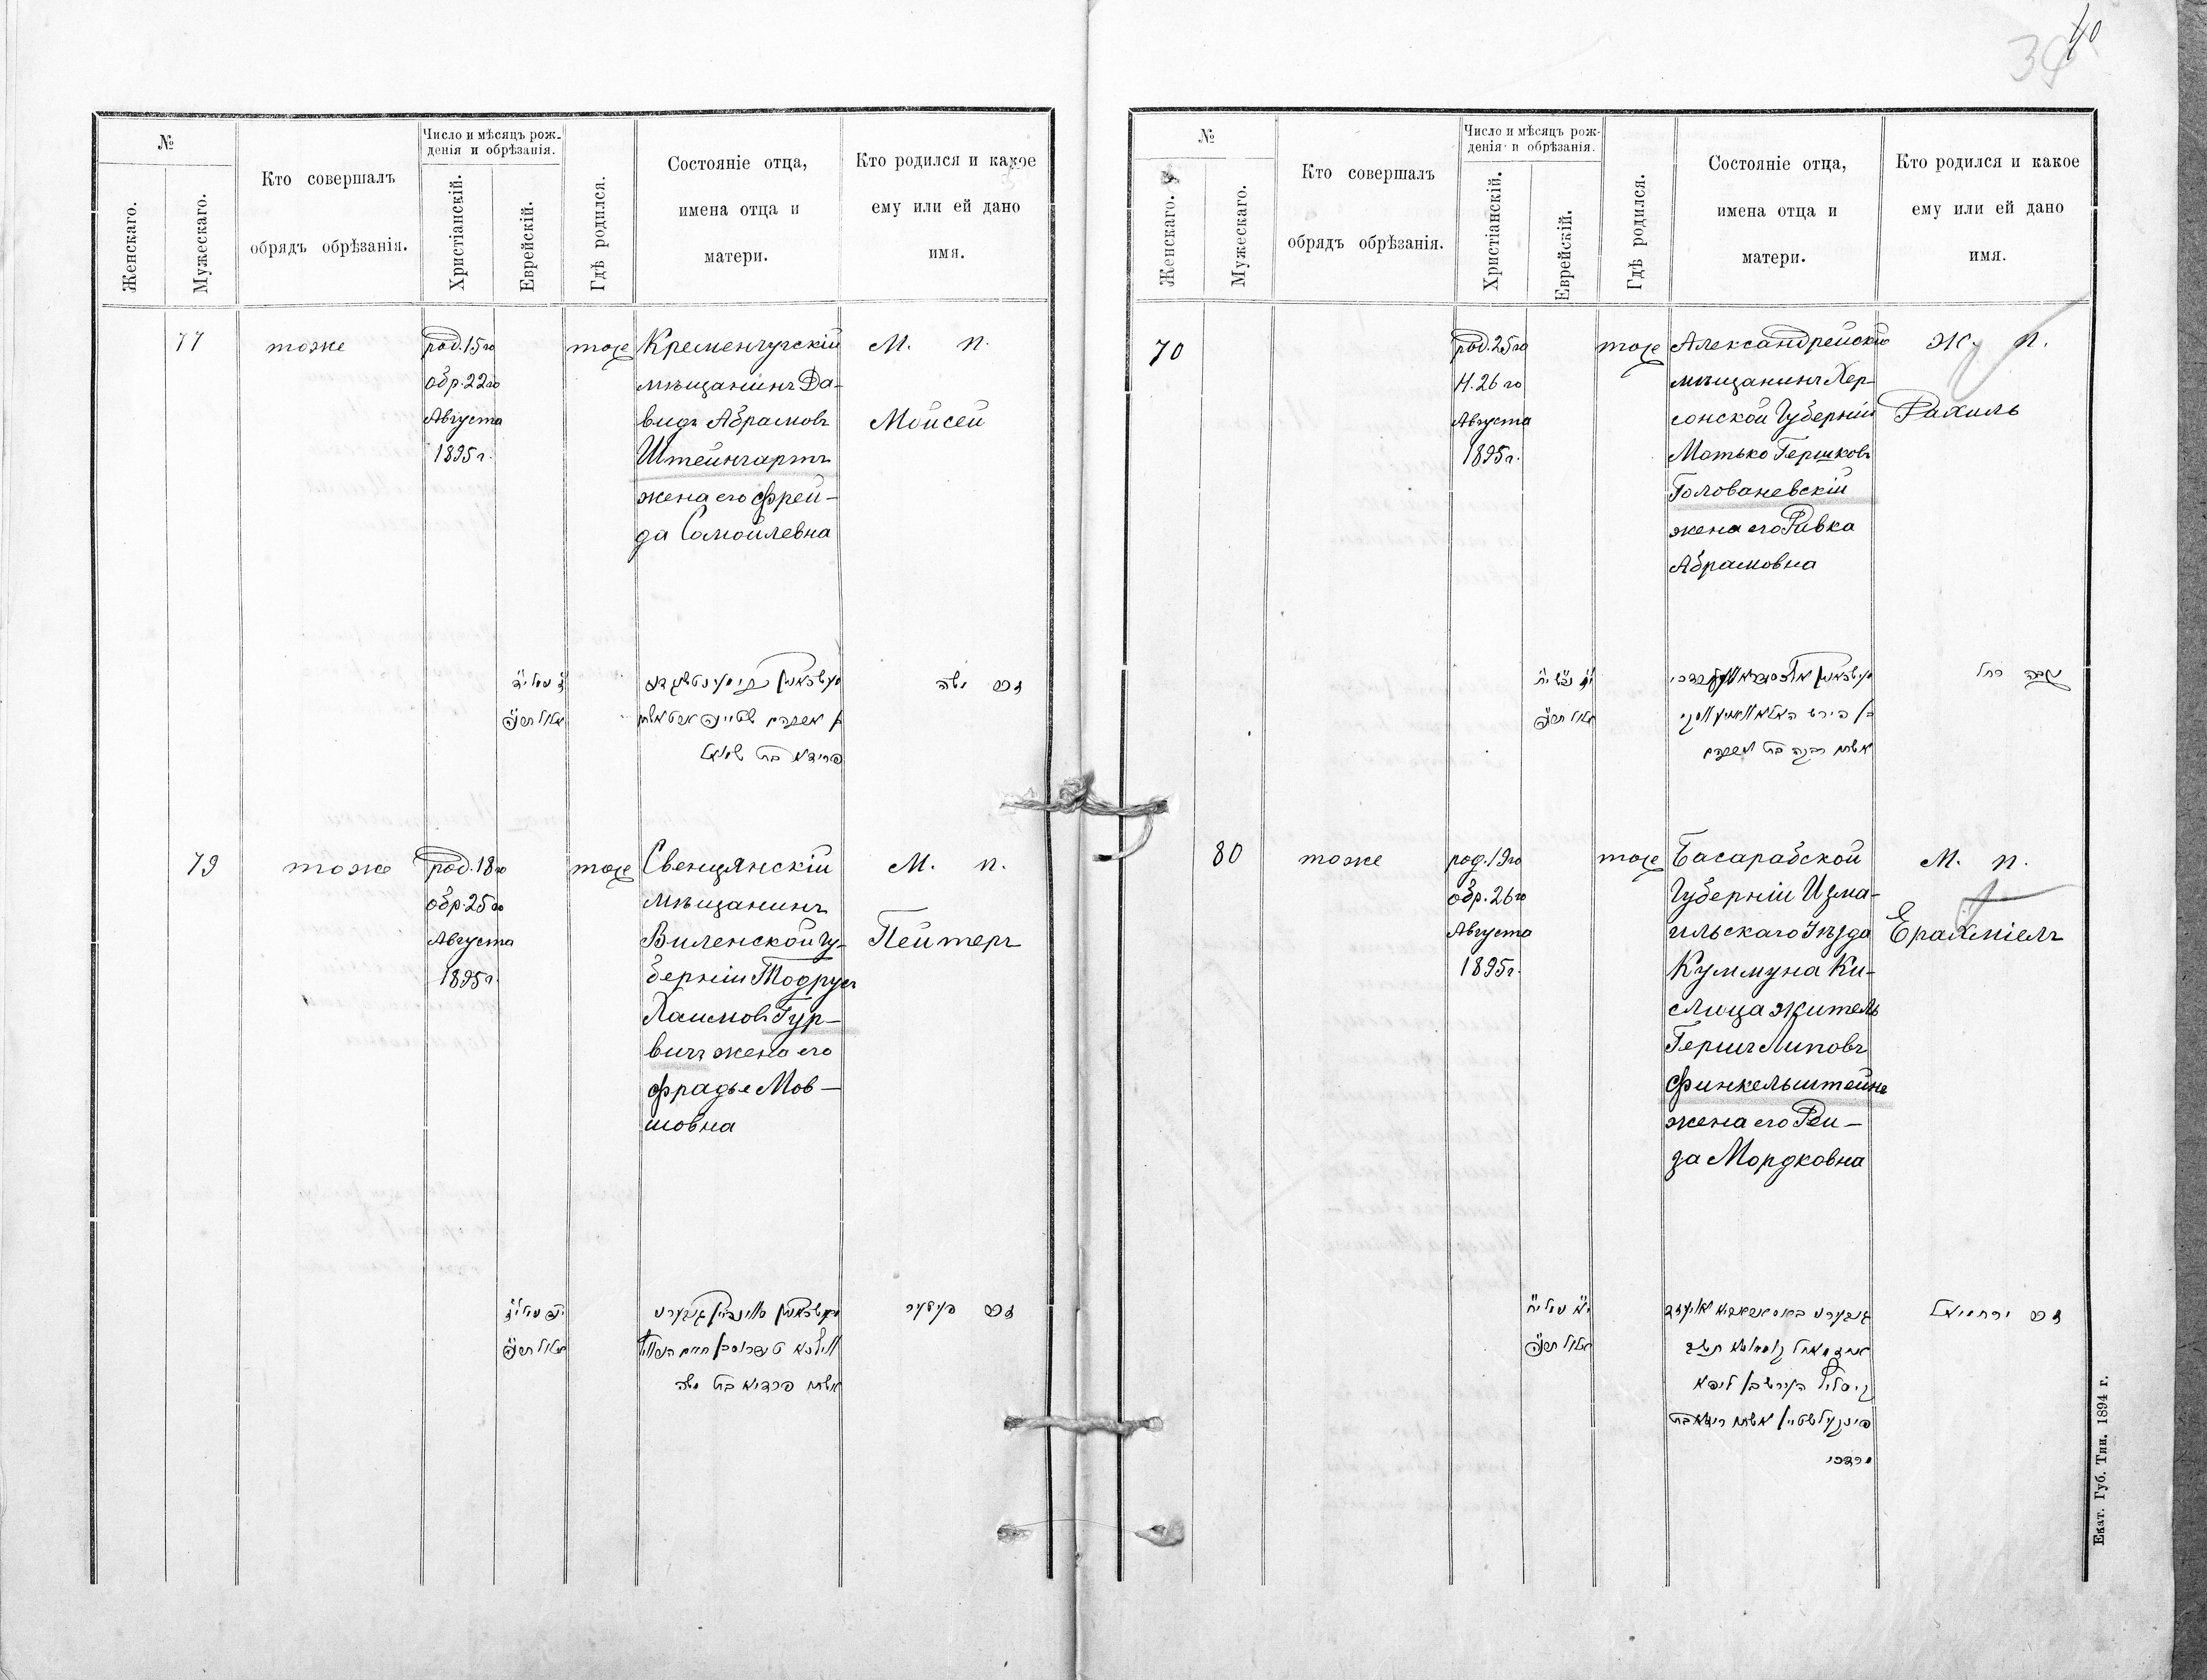 40
39
№
Женскаго.
Мужескаго.
Кто совершалъ
обрядъ обрѣзанія.
Число и мѣсяцъ рож-
денія и обрѣзанія.
Христіанскій.
Еврейскій.
Гдѣ родился.
Состояніе отца,
имена отца и
матери.
Кто родился и какое
ему или ей дано
имя.
77
тоже
род. 15го
обр. 22го
Августа
1895 г.
тоже
Кременчугскій
мѣщанинъ Да-
видъ Абрамовъ
Штейнгартъ
жена его Фрей-
да Самойлевна
М. п.
Мойсей
אלול
פריידא בת שמואל
זכר משה
79
тоже
род. 18го
обр. 25го
Августа
1895 г.
тоже
Свенцянскій
мѣщанинъ
Виленской гу-
берніи Тодрусъ
Хаимовъ Гур-
вичъ жена его
Фрадье Мов-
шовна
М. п.
Пейтеръ
אלול
אשתו פרדיא בת משה
זכר
№
Женскаго.
Мужескаго.
Кто совершалъ
обрядъ обрѣзанія.
Число и мѣсяцъ рож-
денія и обрѣзанія.
Христіанскій.
Еврейскій.
Гдѣ родился.
Состояніе отца,
имена отца и
матери.
Кто родился и какое
ему или ей дано
имя.
70
род. 25го
н. 26го
Августа
1895 г.
тоже
Александрейскій
мѣщанинъ Хер-
сонской Губерніи
Мотько Гершковъ
Голованевскій
жена его Ривка
Абрамовна
Ж. п.
Рахиль
אלול
אשתו רבקה בת אברהם
נקבה רחל
80
тоже
род. 19го
обр. 26го
Августа
1895 г.
тоже
Басарабской
Губерніи Изма-
ильскаго Уѣзда
Куммуна Ки-
слица житель
Гершъ Липовъ
Финкельштейнъ
жена его Рей-
за Мордковна
М. п.
Ерахміелъ
אלול
ליפא
אשתו
מרדכי
זכר ירחמיאל
Екат. Губ. Тип. 1894 г.